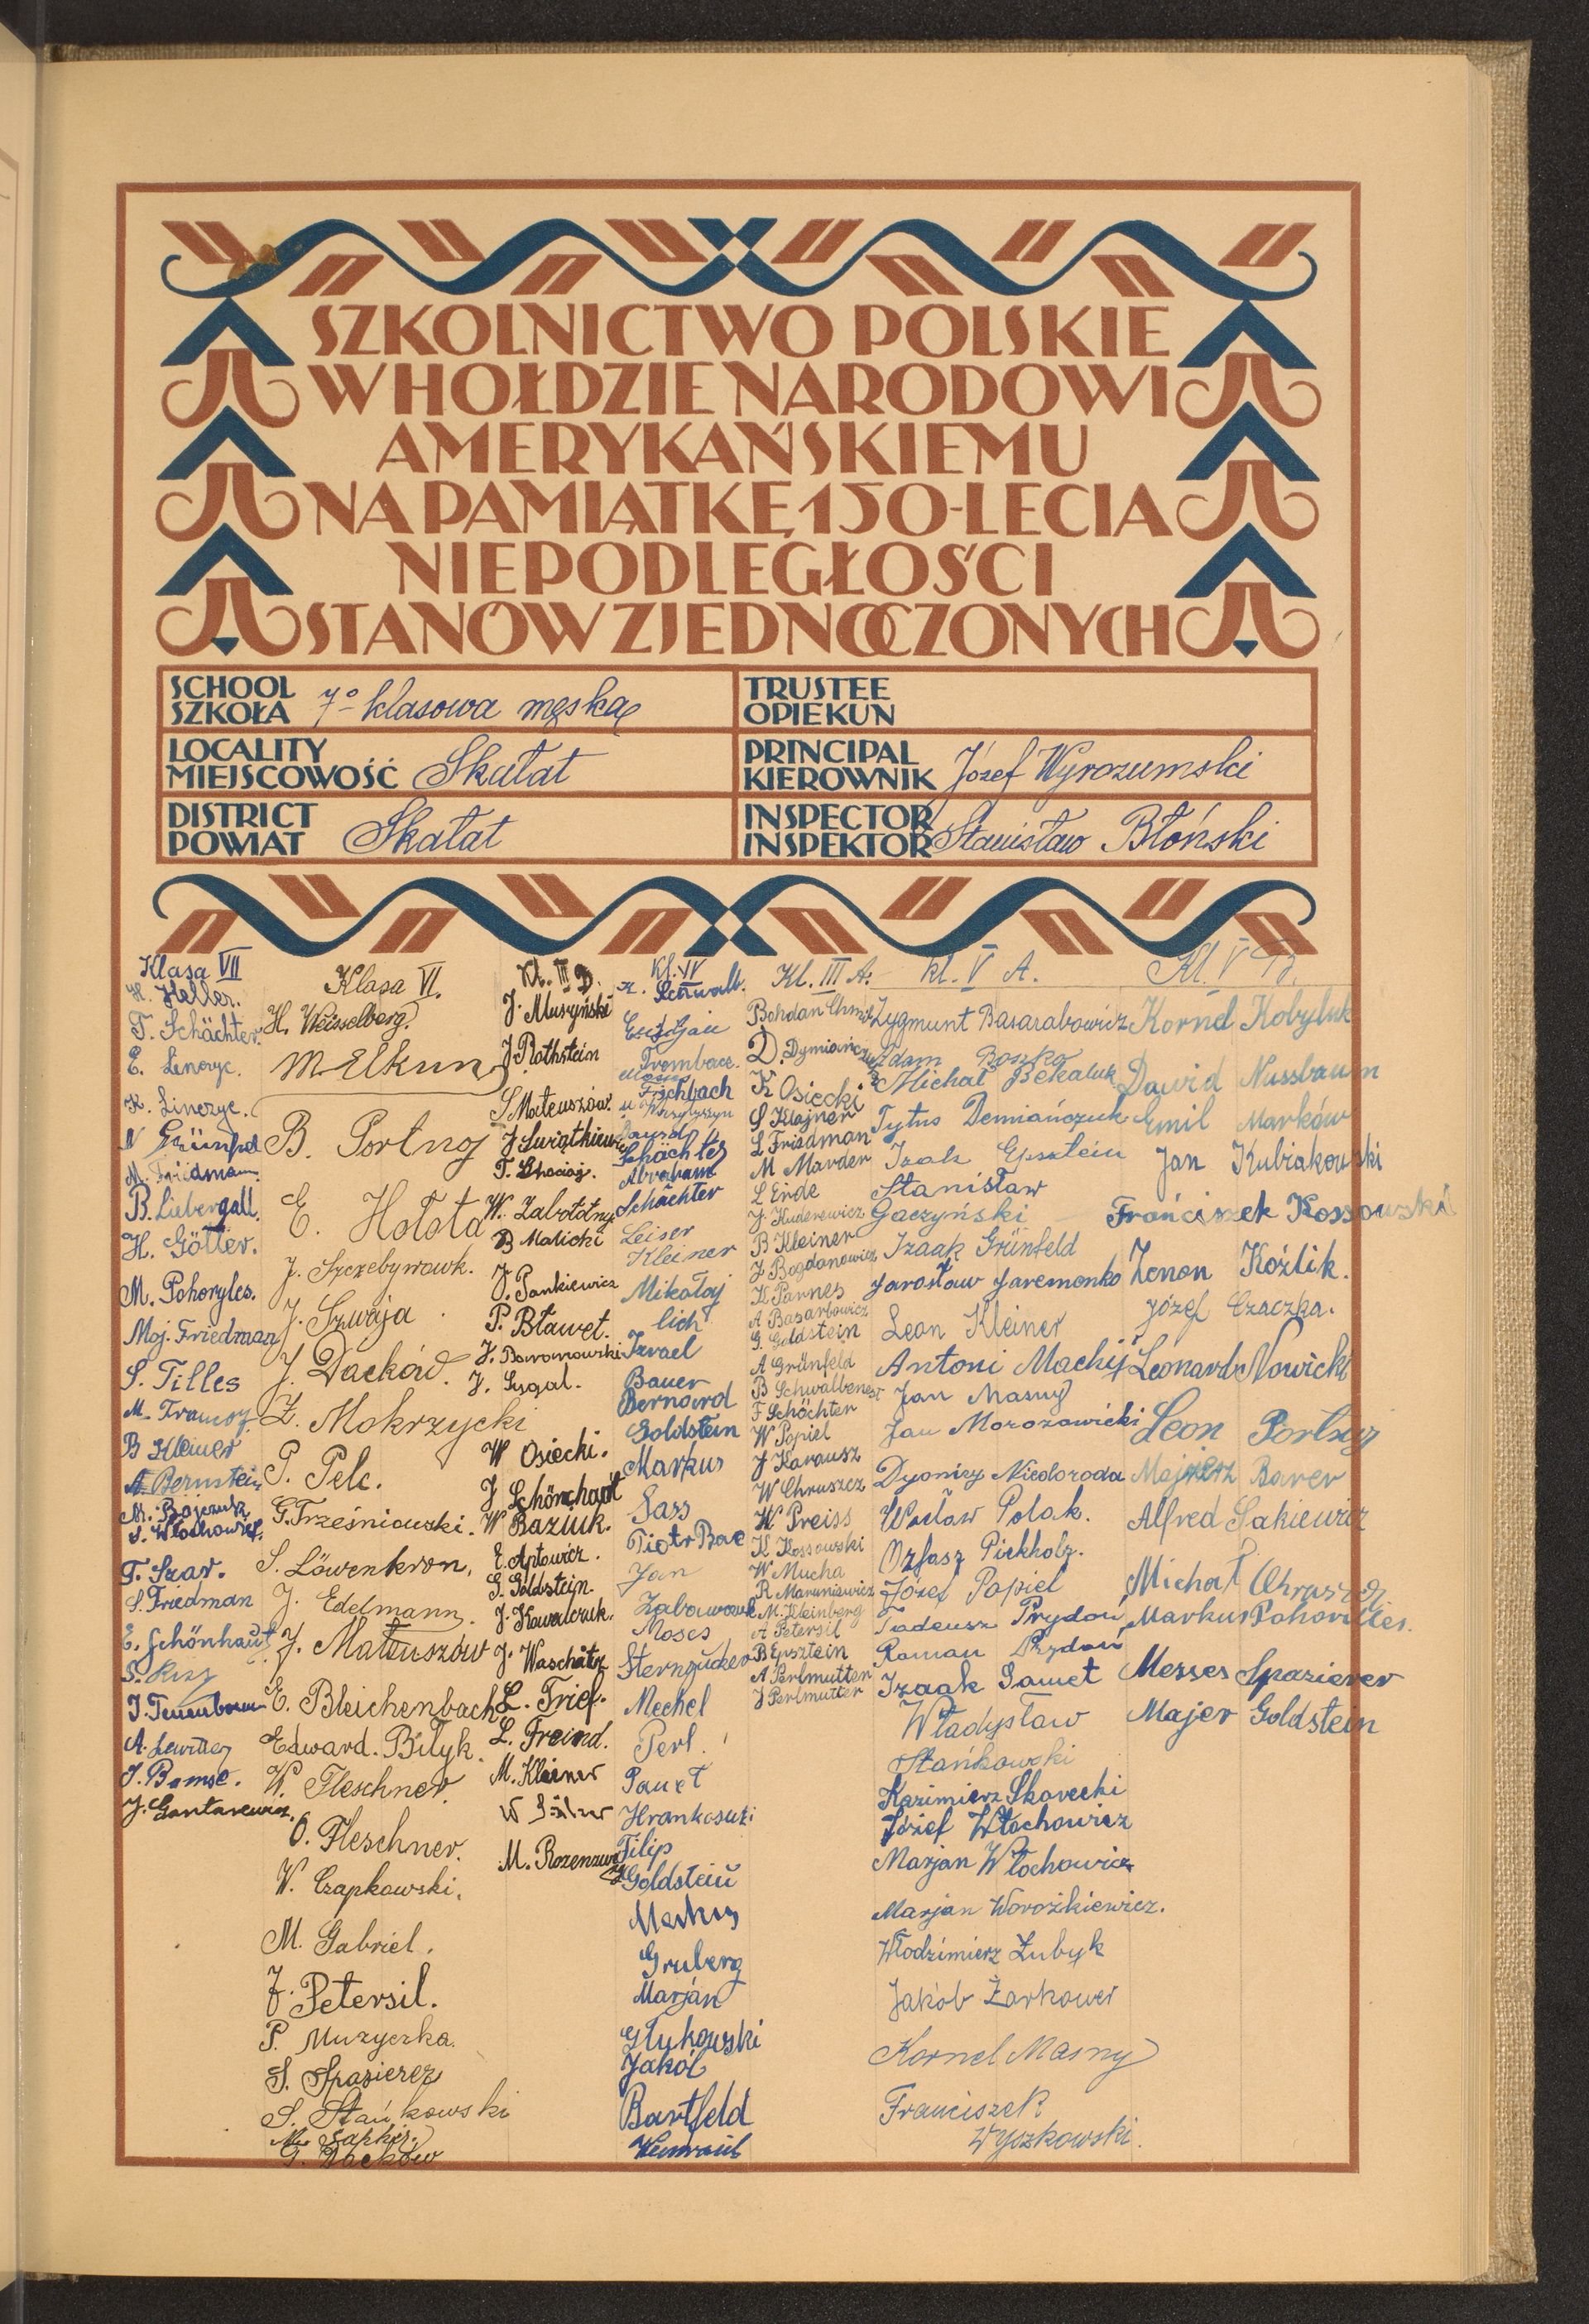 SZKOLNICTWO POLSKIE
W HOŁDZIE NARODOWI
AMERYKAŃSKIEMU
NA PAMIĄTKĘ 150-LECIA
NIEPODLEGŁOŚCI
STANÓW ZJEDNOCZONYCH
SCHOOL
SZKOŁA 7-o klasowa męska
LOCALITY
MIEJSCOWOŚĆ Skałat
DISTRICT
POWIAT Skałat
TRUSTEE
OPIEKUN
PRINCIPAL
KIEROWNIK Józef Wyrozumski
INSPECTOR
INSPEKTOR Stanisław Błoński
Klasa VII
H. Heller.
T. Schächter.
E. Linerzc.
K. Linerzyc.
N Grünfeld
M. Friedman
B. Liebergall.
H. Götter.
M. Pohoryles.
Moj. Friedman
S. Tilles
M.
B Kleiner
A. Bernstein
M. Bojczuk
S. Włochowicz.
T. Szar.
S. Friedman
E. Schönhaut
T. Tenenbaum
A.
J. Bomse.
J. Gontarewicz.
Klasa VI.
H. Weisselberg.
M. Elkun
B. Portnoj
E. Hołota
J. Szczebywowk.
J. Szwaja
J. Dacków.
Z. Mokrzycki
P. Pelc.
G. Trześniowski.
S. Löwenkron.
J. Edelmann.
J. Matuszów
E. Bleichenbach
Edward. Biłyk.
W. Fleschner.
O. Fleschner.
W. Czapkowski.
M. Gabriel.
J. Petersil.
P. Muzyczka.
S. Spazierer
S. Stańkowski
M. Saphir.
G. Dacków
Kl. III B.
J. Muszyński
J. Rothstein
S. Mateuszów.
J. Świątkiewicz
T.
W. Zabłotny
B Malicki
J. Pankiewicz
P. Bławet.
J. Baranowski
J. Segal.
W Osiecki.
J Schönhaut
W Baziuk.
E. Aptowicz.
G. Goldstein.
J. Kowalczuk.
J. Waschätz
L. Frief.
L. Freind.
M. Kleiner
W
M. Rozenzweig
Kl. IV
Schwalb.
Eustazjan
Trombacz.
Fischbach
Dawid
Schächter
Abraham
Schächter
Leiser
Kleiner
Mikołaj
lich
Izrael
Bauer
Bernard
Goldstein
Markus
Sass
Piotr Bac
Jan
Moses
Sterngucker
Mechel
Perl.
Paweł
Filip
Goldstein
Markus
Gruberg
Marjan
Głuhowski
Jakób
Bartfeld
Kl. III A.
Bohdan Chmil
D. Dymiańczuk
K Osiecki
S Klajner
L Friedman
M Marder
L Erde
J. Kuderewicz
B Kleiner
J Bogdanowicz
K Parnes
A Basarbowicz
G. Goldstein
A Grünfeld
B Schwalbenest
F Schächter
W Popiel
J Karausz
W Chruszcz
W Preiss
K Kossowski
W Mucha
R Maruniewicz
M. Kleinberg
A Petersil
B Epsztein
A Perlmutter
J Perlmutter
kl. V A.
Zygmunt Basarabowicz
Adam Bosko
Michał Bekaluk
Tytus Demiańczuk
Izak Epsztein
Stanisław
Gaczyński
Izaak Grünfeld
Jarosław Jaremonko
Leon Kleiner
Antoni Machij
Jan Masny
Jan Morozowicki
Dyonizy Niedoroda
Wacław Polak.
Ozjasz Pickholz.
Józef Popiel
Tadeusz Prydoń
Roman Prydoń
Izaak Samet
Władysław
Stańkowski
Kazimierz Skorecki
Józef Włochowicz
Marjan Włochowicz
Marjan Worożkiewicz.
Włodzimierz Zubyk
Jakób Zarkower
Kornel Masny
Franciszek
Wyszkowski.
Kl. V B.
Kornel Kobyluk
Dawid Nussbaum
Emil Marków
Jan Kubiakowski
Franciszek Kossowski
Zenon Koźlik.
Józef Czaczka.
Leonard Nowicki
Leon Portnoj
Majżesz Barer
Alfred Sakiewicz
Michał Chruszcz
Markus Pohoryles.
Messes Spazierer
Majer Goldstein